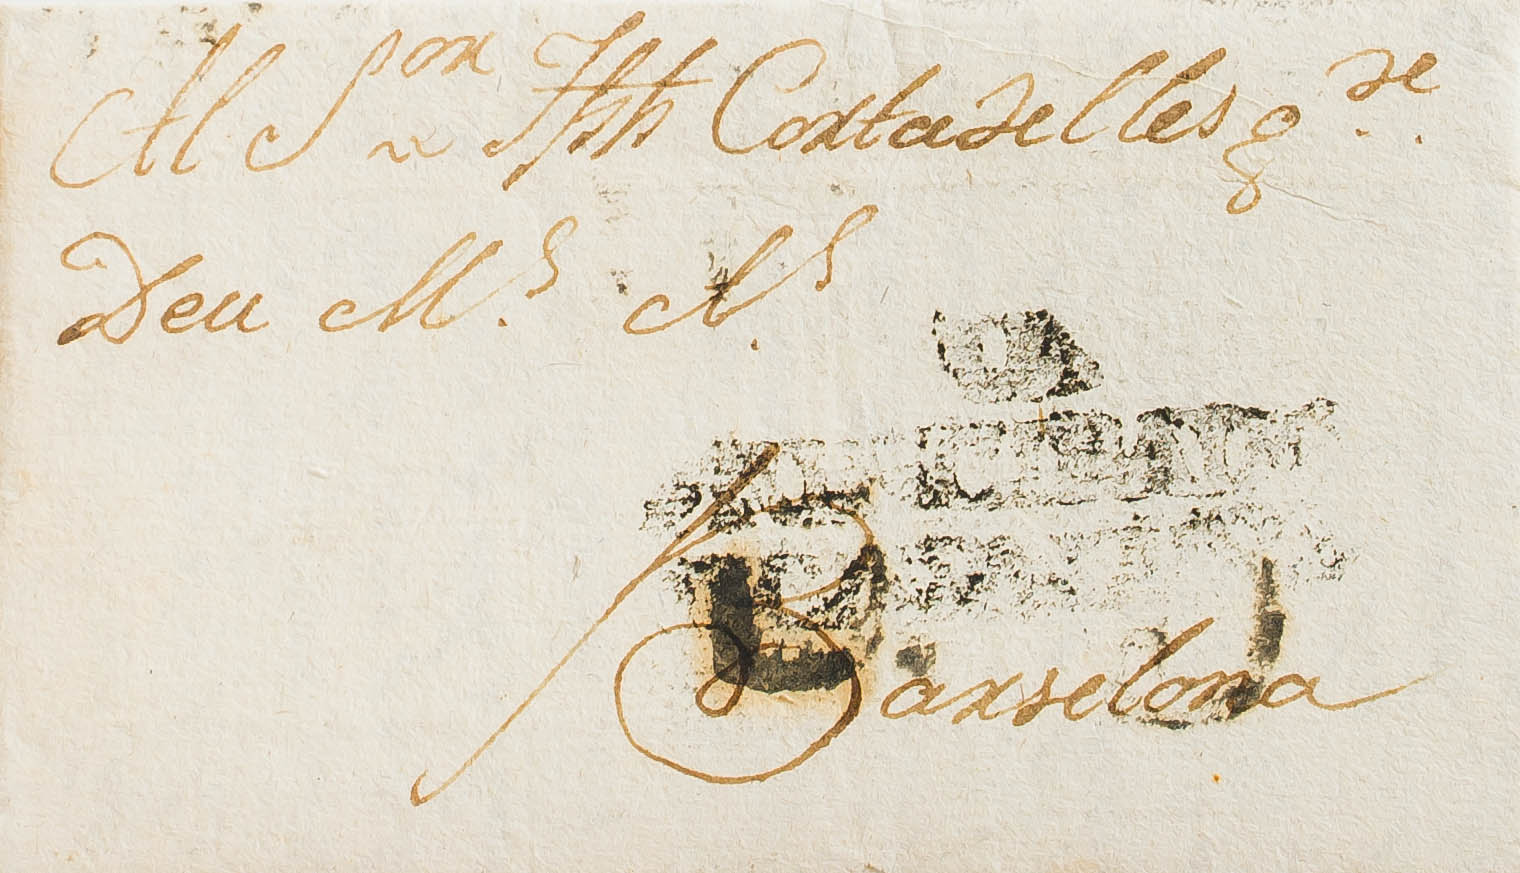 Al S.or Jph Cortadelles q.de
Deu M.s A.s
Barselona